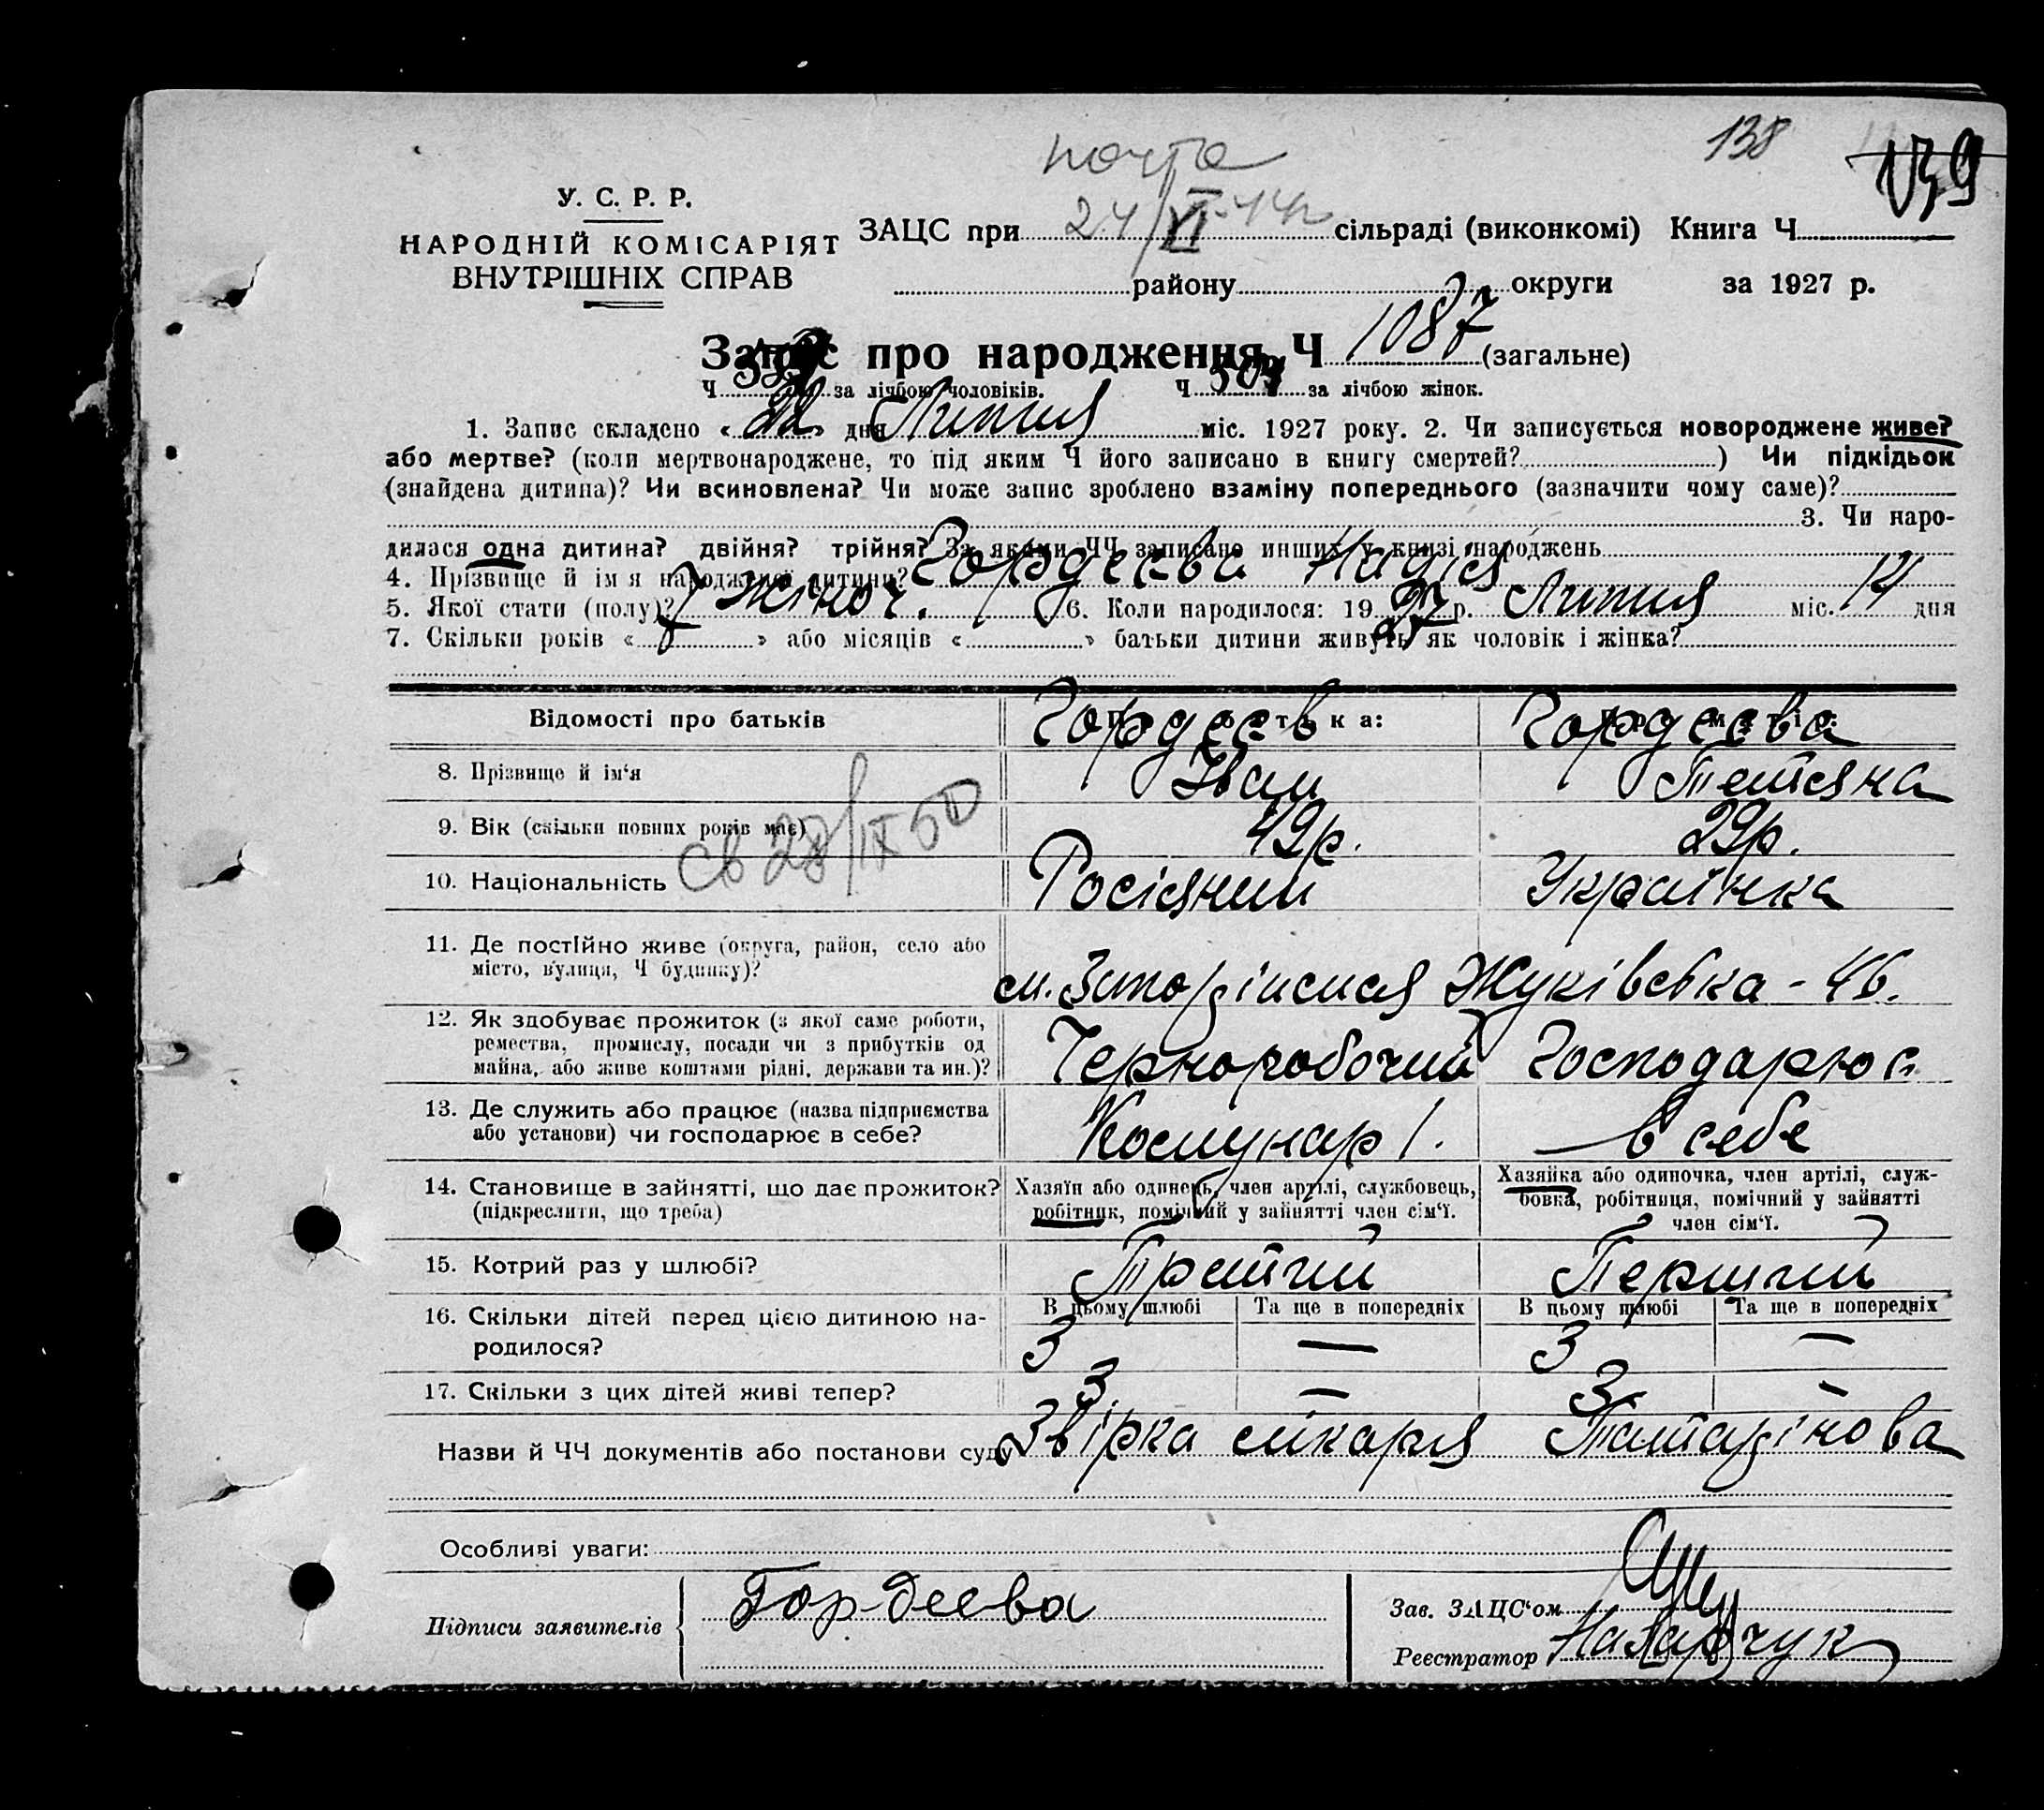 138
139
почта
У. С. Р. Р.
НАРОДНІЙ КОМІСАРІЯТ
ВНУТРІШНІХ СПРАВ
ЗАЦС при 24/VI-44г сільраді (виконкомі) Книга Ч
району округи за 1927 р.
Запис про народження Ч 1087 (загальне)
Ч за лічбою чоловіків. Ч 504 за лічбою жінок.
1. Запис складено «22» дня Липня міс. 1927 року. 2. Чи записується новороджене живе?
або мертве? (коли мертвонароджене, то під яким Ч його записано в книгу смертей?) Чи підкідьок
(знайдена дитина)? Чи всиновлена? Чи може запис зроблено взаміну попереднього (зазначити чому саме)?
3. Чи наро-
дилася одна дитина? двійня? трійня? За якими ЧЧ записано инших у книзі народжень
4. Прізвище й ім'я народженої дитини? Гордєєва Надія
5. Якої стати (полу)? жіноч. 6. Коли народилося: 1927 р. Липня міс. 14 дня
7. Скільки років «7» або місяців « » батьки дитини живуть як чоловік і жінка?
Відомості про батьків
Про батька:
Про матір:
8. Прізвище й ім'я Гордєєв Іван Гордєєва Тетяна
9. Вік (скільки повних років має) 42р. 29р.
св 28/IX 50
10. Національність Росіянин Українка
11. Де постійно живе (округа, район, село або
місто, вулиця, Ч будинку)?
м. Запоріжжя Жуківська - 46.
12. Як здобуває прожиток (з якої саме роботи,
ремества, промислу, посади чи з прибутків од
майна, або живе коштами рідні, держави та ин.)?
Чорноробочий Господарює
13. Де служить або працює (назва підприємства
або установи) чи господарює в себе?
Комунар 1. в себе
14. Становище в зайнятті, що дає прожиток?
(підкреслити, що треба)
Хазяїн або одинець, член артілі, службовець,
робітник, помічний у зайнятті член сім'ї.
Хазяйка або одиночка, член артілі, служ-
бовка, робітниця, помічний у зайнятті
член сім'ї.
15. Котрий раз у шлюбі? Третий Перший
16. Скільки дітей перед цією дитиною на-
родилося?
В цьому шлюбі Та ще в попередніх В цьому шлюбі Та ще в попередніх
3 — 3 —
17. Скільки з цих дітей живі тепер? 3 — 3 -
Назви й ЧЧ документів або постанови суду Звірка лікаря
Особливі уваги:
Підписи заявителів Гордеева
Зав. ЗАЦС'ом
Реєстратор